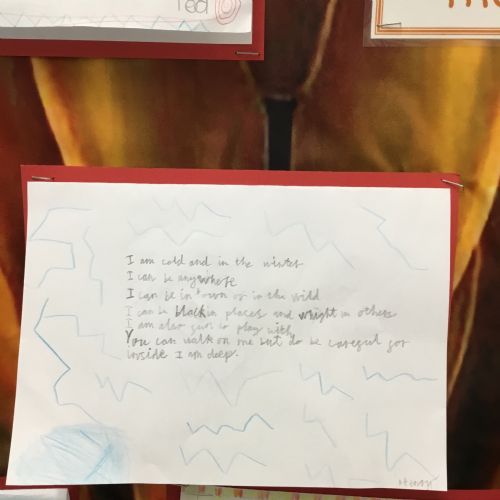 Ted
I am cold and in the winter
I can be anywhere
I can be in town or in the wild
I can be black in places and whight in others
I am also fun to play with
You can walk on me but do be careful for
inside I am deep.